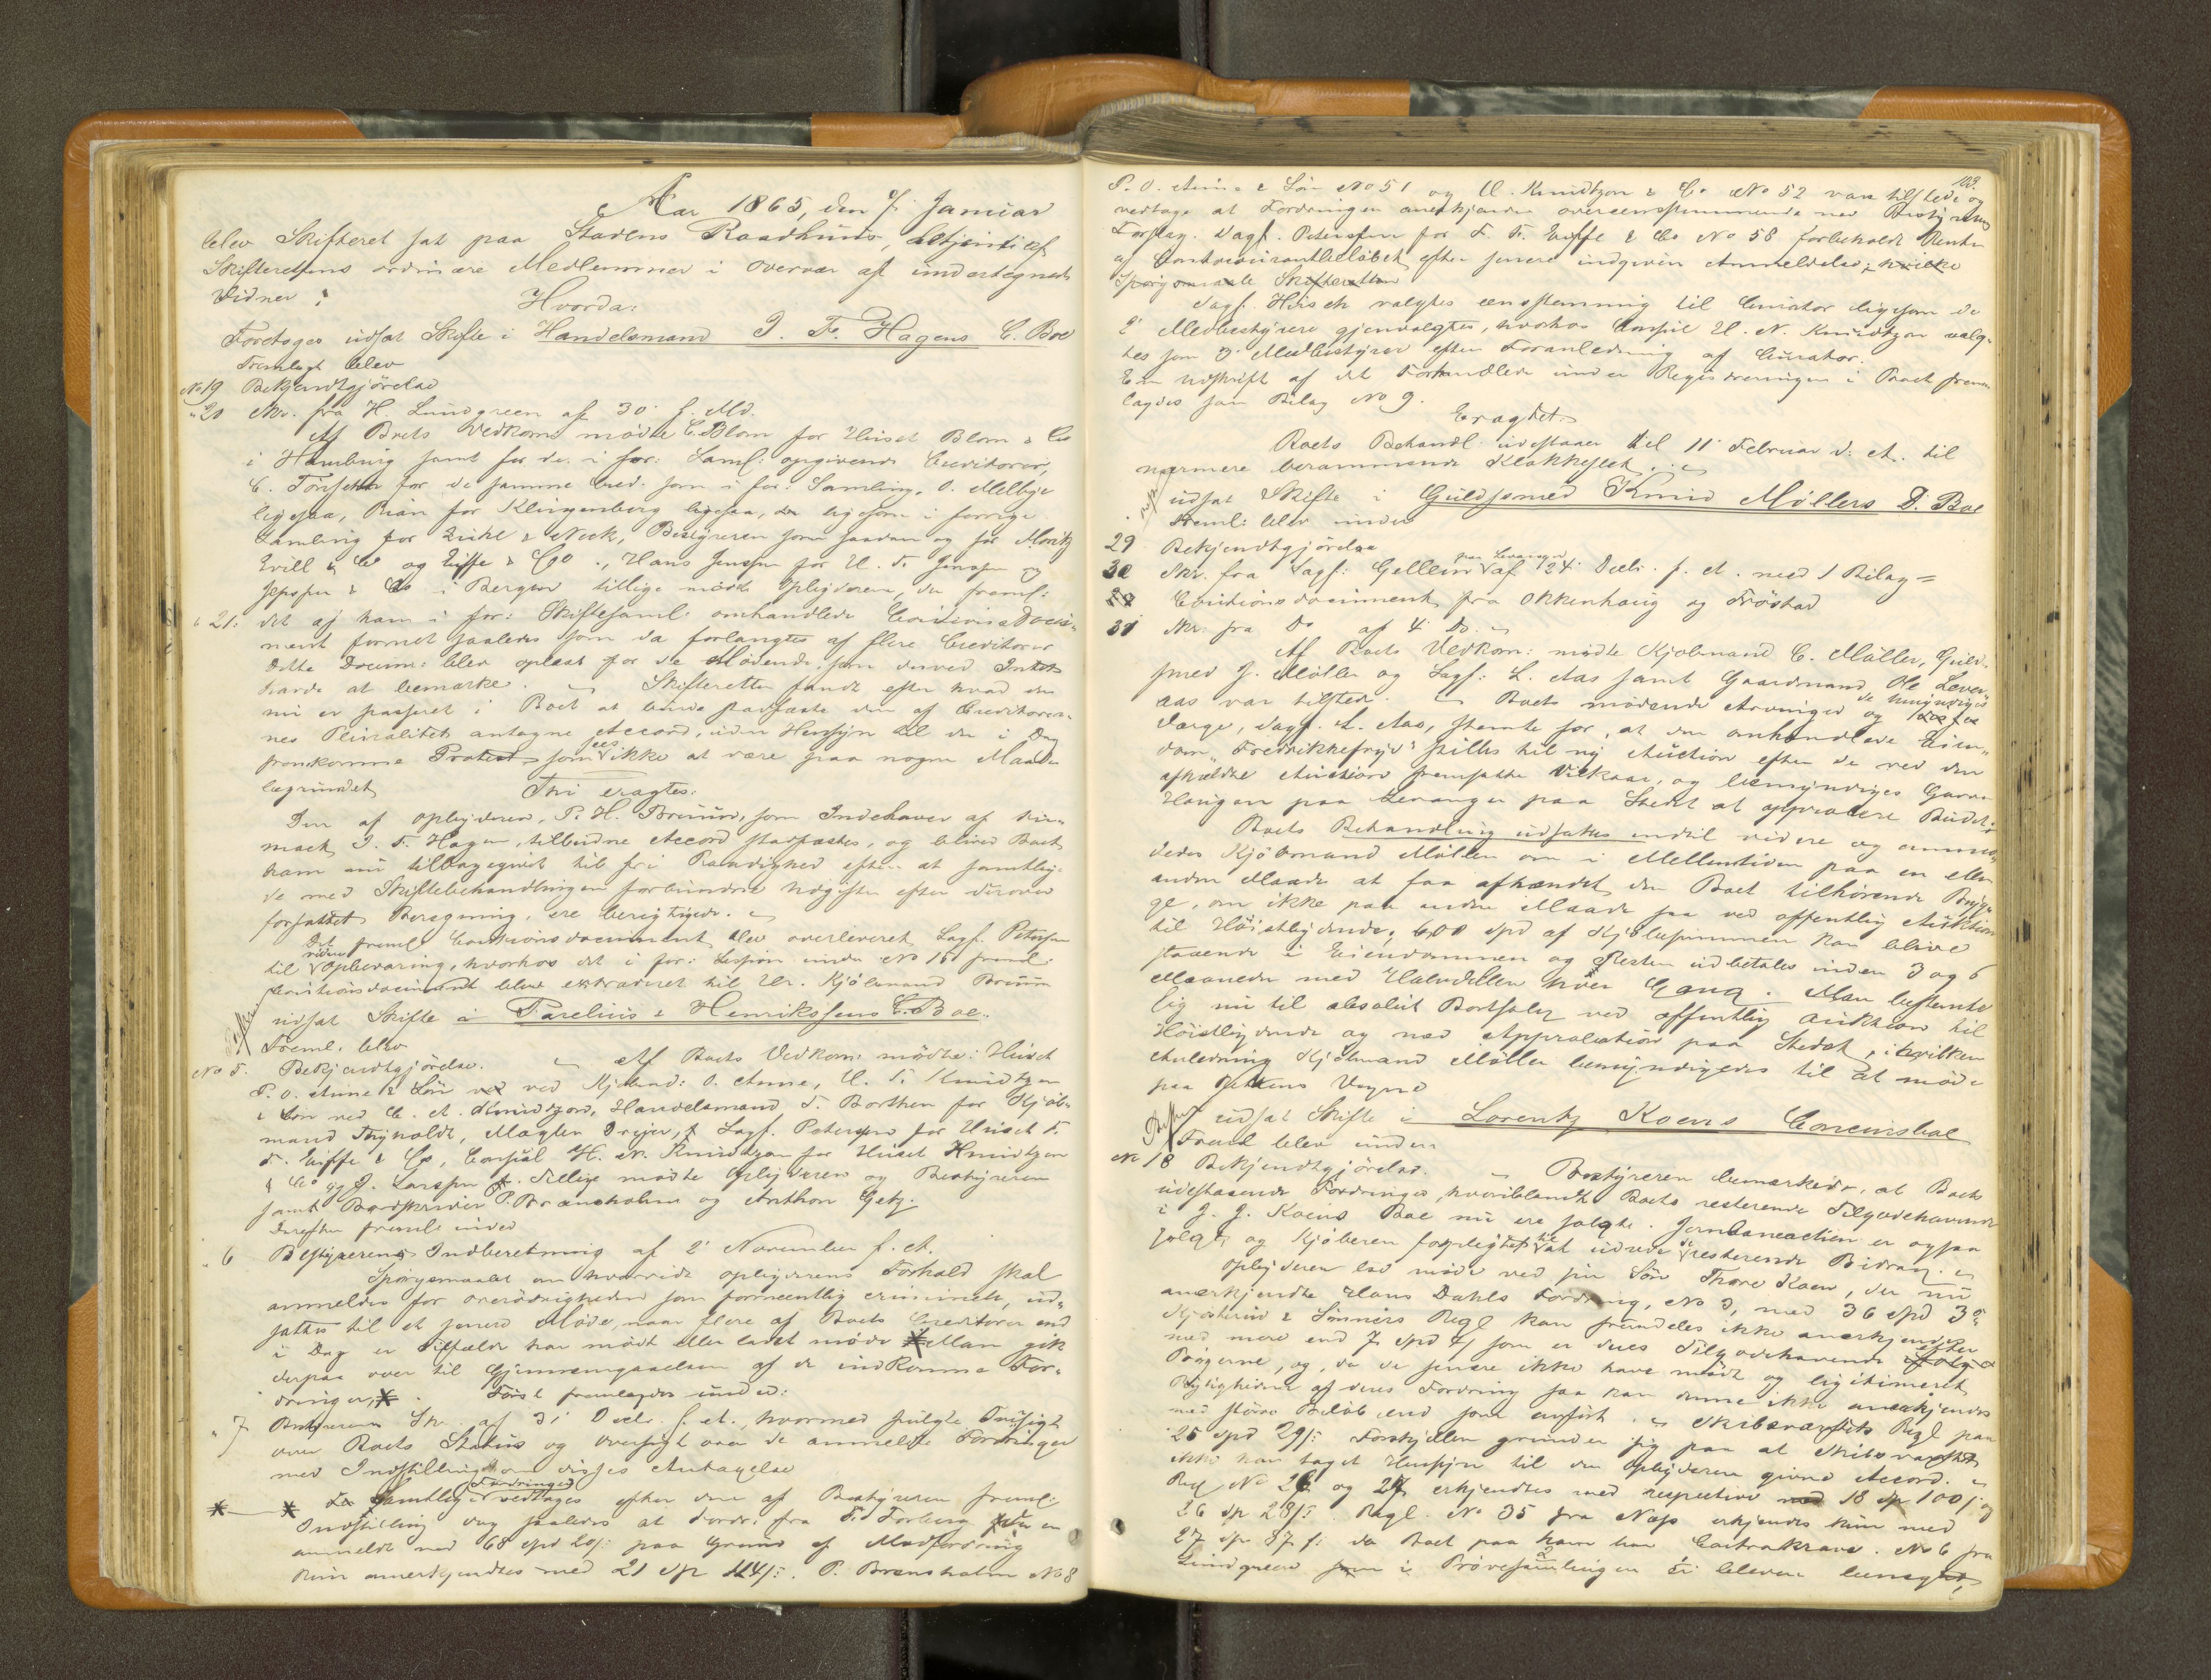 Aar 1865, den 7/1 Januar
blev Skifteret sat paa Stadens Raadhuus, betjent af
Skifterettens ordinære Medlemmer i Overvær af undertegnede
Vidner:
Hvorda:
Foretoges udsat Skifte i Handelsmand J. F. Hagens C. Boe
Fremlagt blev
No 19 Bekjendtgjörelse
" 20 Skr. fra H. Lundgreen af 30' f. Md.
Af Boets Vedkom mødte C. Blom for Huset Blom & Co
i Hamburg samt for de i for: Saml: opgivende Creditorer,
C. for de samme Cred. som i for: Samling. O. Mellbye
ligesaa, for Klingenberg ligesaa, ligesom i forrige
Samling for & Neek, Bestyreren som saadan og for Moritz
Evill & Co og Eiffe & Co., Hans Jenssen for H. F. Jenssen og
Jepsen & Co i Bergen tillige mødte Opbyderen, der freml:
" 21: det af ham i for: Skiftesaml. omhandlede Cautionsdocu-
ment formet saaledes som da forlangtes af flere Creditorer
Dette Docum: blev oplæst for de Mødende, som derved Intet
havde at bemærke. Skifteretten fandt efter hvad der
nu er passeret i Boet at burde stadfæste den af Creditorer-
nes Pluralitet antagne Accord, uden Hensyn til den i Dag
fremkomne Protest som sees ikke at være paa nogen Maade
begrundet
Thi eragtes:
Den af Opbyderen, P. H. Bruun, som Indehaver af Fir-
maet J. F. Hagen, tilbudne Accord stadfæstes, og bliver Boet
ham nu tilbagegivet til fri Raadighed efter at samtli-
ge med Skiftebehandlingen forbundne Udgifter efter derover
forfattet Beregning, ere berigtigede.
Det freml Cautionsdocument blev overleveret Sagf. Petersen
til videre Opbevaring, hvorhos det i for: Session under No 15 freml:
Cautionsdocument blev extraderet til Hr. Kjöbmand Bruun
udsat Skifte i Parelius & Henrikssens C. Boe.
Freml. blev
No 5. Bekjendtgjörelse. Af Boets Vedkom: mødte: Huset
P. O. Aune & Sön ved Kjøbmd: O. Aune, H. F. Knudtzon
& Sön ved C. A. Knudtzon, Handelsmand F. Borthen for Kjöb-
mand Thynoldt, Mægler Dreyer, Sagf. Petersen for Huset F.
F. Eiffe & Co, Consul H. N. Knudtzon for Huset Knudtzon
& Co og J. Larssen. Tillige mødte Opbyderen og Bestyreren
samt Bogskriver P. Bransholm og Anthon Getz.
Derefter freml: under
" 6 Bestyrerens Indberetning af 2' November f. A.
Spørgsmaalet om hvorvidt Opbyderens Forhold skal
anmeldes for Overøvrigheden som formeentlig criminelt, ud-
sattes til et senere Møde, naar flere af Boets Creditorer end
i Dag er Tilfælde har mødt eller ladet møde * Man gik
derpaa over til Gjennemgaaelsen af de indkomne For-
dringer, * . Først fremlagdes under:
" 7 Bestyrerens Skr. af 31' Decbr. f. A., hvormed fulgte Oversigt
over Boets Status og Oversigt over de anmeldte Fordringer
med Indstilling om disses Antagelse
*—* Samtlige Fordringer vedtoges efter den af Bestyreren freml:
Indstilling dog saaledes at Fordr: fra F. Forberg der er
anmeldt med 68 Spd 20 s: paa Grund af Modfordring
kun anerkjendtes med 21 Sp 114 s:. P. Bransholm No 8
103.
P. O. Aune & Sön No 51 og H. Knudtzon & Co No 52 vare tilstede og
vedtoge at Fordringen anerkjendes overensstemmende med Bestyrerens
Forslag. Sagf. Petersen for F. F. Eiffe & Co No 58 forbeholdt Renter
af Contocourantbeløbet efter senere indgiven Anmeldelse; hvilke
Spørgsmaale Skifteretten
Sagf. Hirsch valgtes eenstemmig til Curator ligesom de
2' Medbestyrere gjenvalgtes, hvorhos Consul H. N. Knudtzon valg-
tes som 3' Medbestyrer efter Foranledning af Curator.
En Udskrift af det Forhandlede under Registreringen i Boet frem-
lagdes som Bilag No 9.
Eragtet
Boets Behandl. udestaaer til 11' Februar d: A. til
nærmere berammende Klokkeslet.
udsat Skifte i Guldsmed Knud Møllers D. Boe
Freml: blev under
29 Bekjendtgjörelse
30 Skr. fra Sagf: Gellein paa Levanger af 24' Decbr. f. A. med 1 Bilag =
Cautionsdocument fra Okkenhaug og Fröstad
31 Skr. fra Do af 4' ds.
Af Boets Vedkom: mødte Kjöbmand C. Müller, Guld-
smed J. Møller og Sagf: L. Aas samt Gaardmand Ole Lever-
aas var tilstede. Boets mødende Arvinger og de umyndiges
Værge, Sagf. L. Aas, stemte for, at den omhandlede Eien-
dom "Fredrikkefryd" stilles til ny Auction efter de ved den
afholdte Auction fremsatte Vilkaar, og bemyndiges Gaard
Haugen paa Levanger paa Stedet at approbere Budet:
Boets Behandling udsattes indtil videre og anmo-
dedes Kjöbmand Møller om i Mellemtiden paa en eller
anden Maade at faa afhændet den Boet tilhørende Bryg-
ge, om ikke paa anden Maade saa ved offentlig Auktion
til Höistbydende; 600 Spd af Kjöbesummen kan blive
staaende i Eiendommen og Resten udbetales inden 3 og 6
Maaneder med Halvdelen hver Gang. Man bestemte
sig nu til absolut Bortsalg ved offentlig Auktion til
Höistbydende og med Approbation paa Stedet, i hvilken
Anledning Kjöbmand Møller bemyndigedes til at møde
paa Rettens Vegne
udsat Skifte i Lorentz Koens Concursboe
Freml blev under
No 18 Bekjendtgjörelse. Bestyreren bemærkede, at Boets
udestaaende Fordringer, hvoriblandt Boets resterende Tilgodehavende
i J. J. Koens Boe nu ere solgte. Jernbaneactien er ogsaa
solgt, og Kjøberen forpligtet til at udrede de resterende Bidrag.
Opbyderen lod møde ved sin Søn Thore Koen, der nu
anerkjendte Hans Dahls Fordring, No 3, med 36 Spd 3 s:
Kjøsterud & Sønners Regl kan fremdeles ikke anerkjendes
med mere end 7 Spd 4 s som er deres Tilgodehavende efter
Bøgerne, og, da de senere ikke have mødt og legitimeret
Rigtigheden af deres Fordring saa kan denne ikke anerkjendes
med større Beløb end som anført. Skibsværftets Regl paa
25 Spd 29 s: Forskjellen grunder sig paa at Skibsværftet
ikke har taget Hensyn til den Opbyderen givne Accord.
Regl No 26 og 27 erkjendtes med respective 18 Sp 100 s og
26 Sp 28 s:. Regl. No 35 fra Næss erkjendes kun med
27 Sp 87 s: da Boet paa ham har Contrakrav. No 6 fra
Lundgreen i Prøvesamlingen